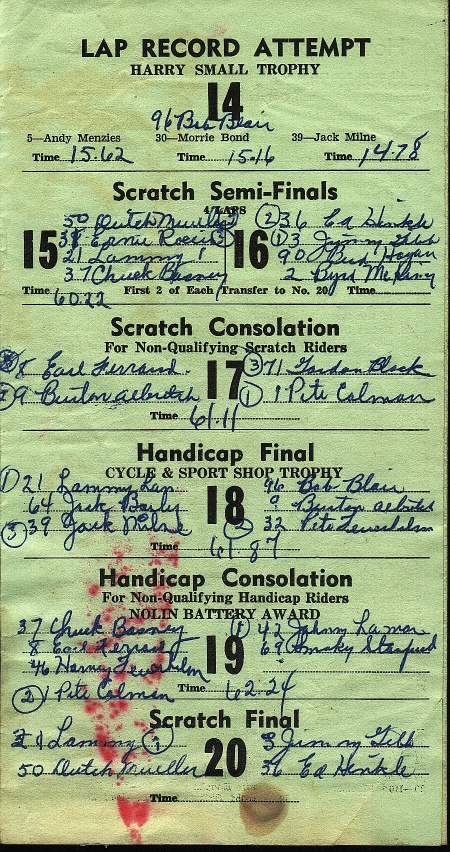 LAP RECORD ATTEMPT
HARRY SMALL TROPHY
14
96 Bob Blair
5—Andy Menzies 30—Morrie Bond 39—Jack Milne
Time 15.62 Time 15.16 Time 14.78
Scratch Semi-Finals
4 LAPS
15
50 Dutch Mueller
38 Ernie
21 Lammy
37 Chuck Basney
16
(2) 36 Ed Hinkle
(1) 3 Jimmy Gibb
90 Hogan
2 Byrd McKiney
Time 60.22 First 2 of Each Transfer to No. 20 Time
Scratch Consolation
For Non-Qualifying Scratch Riders
17
8 Earl Ferrand (3) 71 Gordon Block
9 Burton Albertch (1) 1 Pete Colman
Time 61.11
Handicap Final
CYCLE & SPORT SHOP TROPHY
18
(1) 21 Lammy 96 Bob Blair
64 Jack 9 Burton
(3) 39 Jack Milne 32 Pete
Time 61.87
Handicap Consolation
For Non-Qualifying Handicap Riders
NOLIN BATTERY AWARD
19
37 Chuck Basney (1) 42 Johnny Lamar
8 Earl Ferrand 69 Smoky Stanfield
46
(2) 1 Pete Colman Time 62.24
Scratch Final
20
21 Lammy (1) 3 Jimmy Gibb
50 Dutch Mueller 36 Ed Hinkle
Time